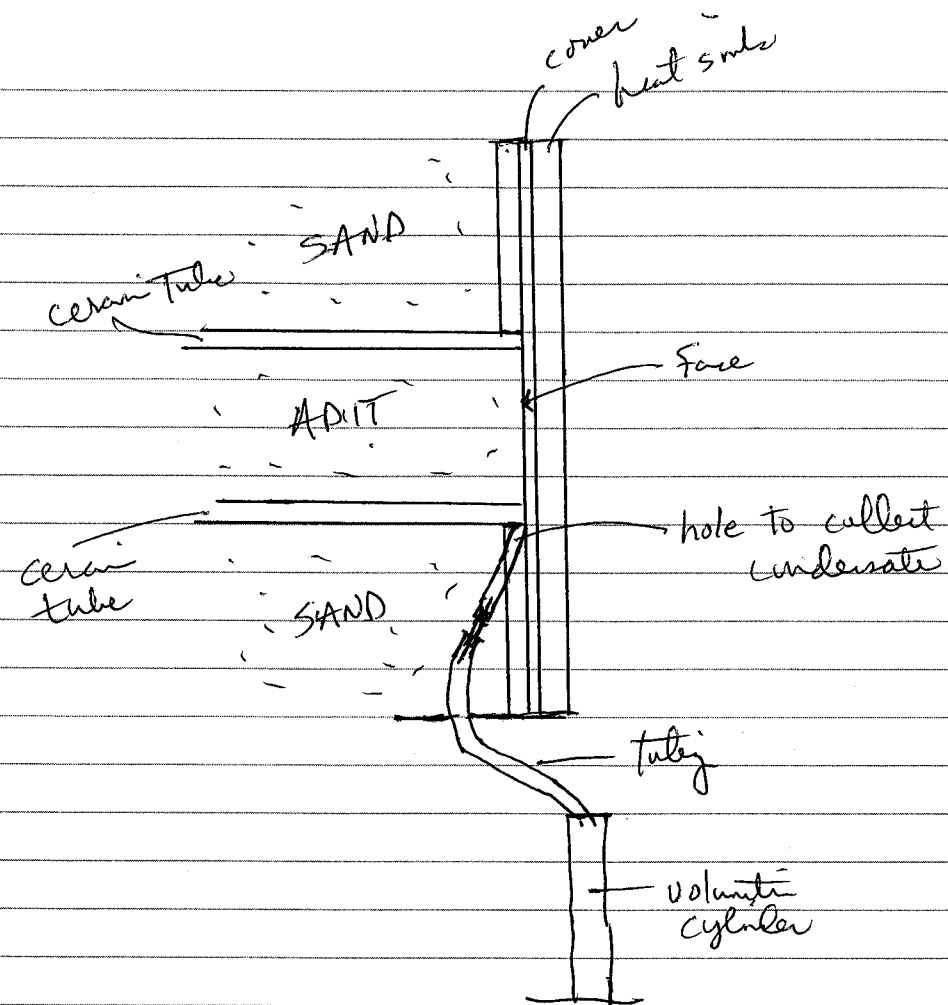 cover
heat sink
SAND
ceram Tube
Face
ADIT
hole to collect
condensate
ceram
tube
SAND
tubing
volumetric
cylinder